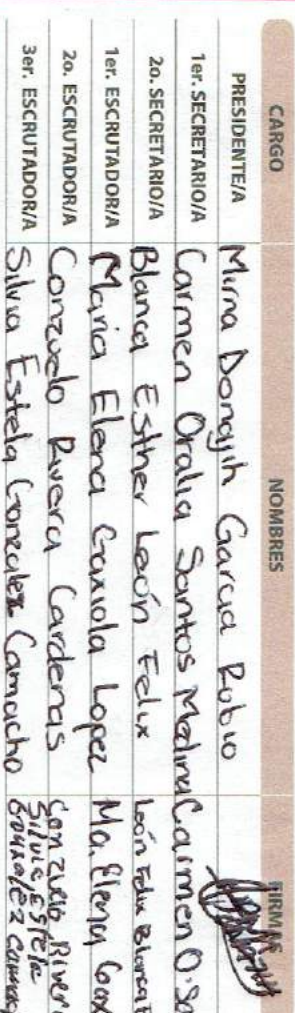 CARGO NOMBRES FIRMAS
PRESIDENTE/A Mirna Donajih Garcia Rubio
1er. SECRETARIO/A Carmen Oralia Santos Medina Carmen O. Sa
2o. SECRETARIO/A Blanca Esther León Felix León Felix Blanca E
1er. ESCRUTADOR/A Maria Elena Gaxiola Lopez Ma. Elena Gax
2o. ESCRUTADOR/A Conzuelo Rivera Cardenas Conzuelo River
3er. ESCRUTADOR/A Silvia Estela Gonzalez Camacho Silvia Estela
Gonzalez Camac